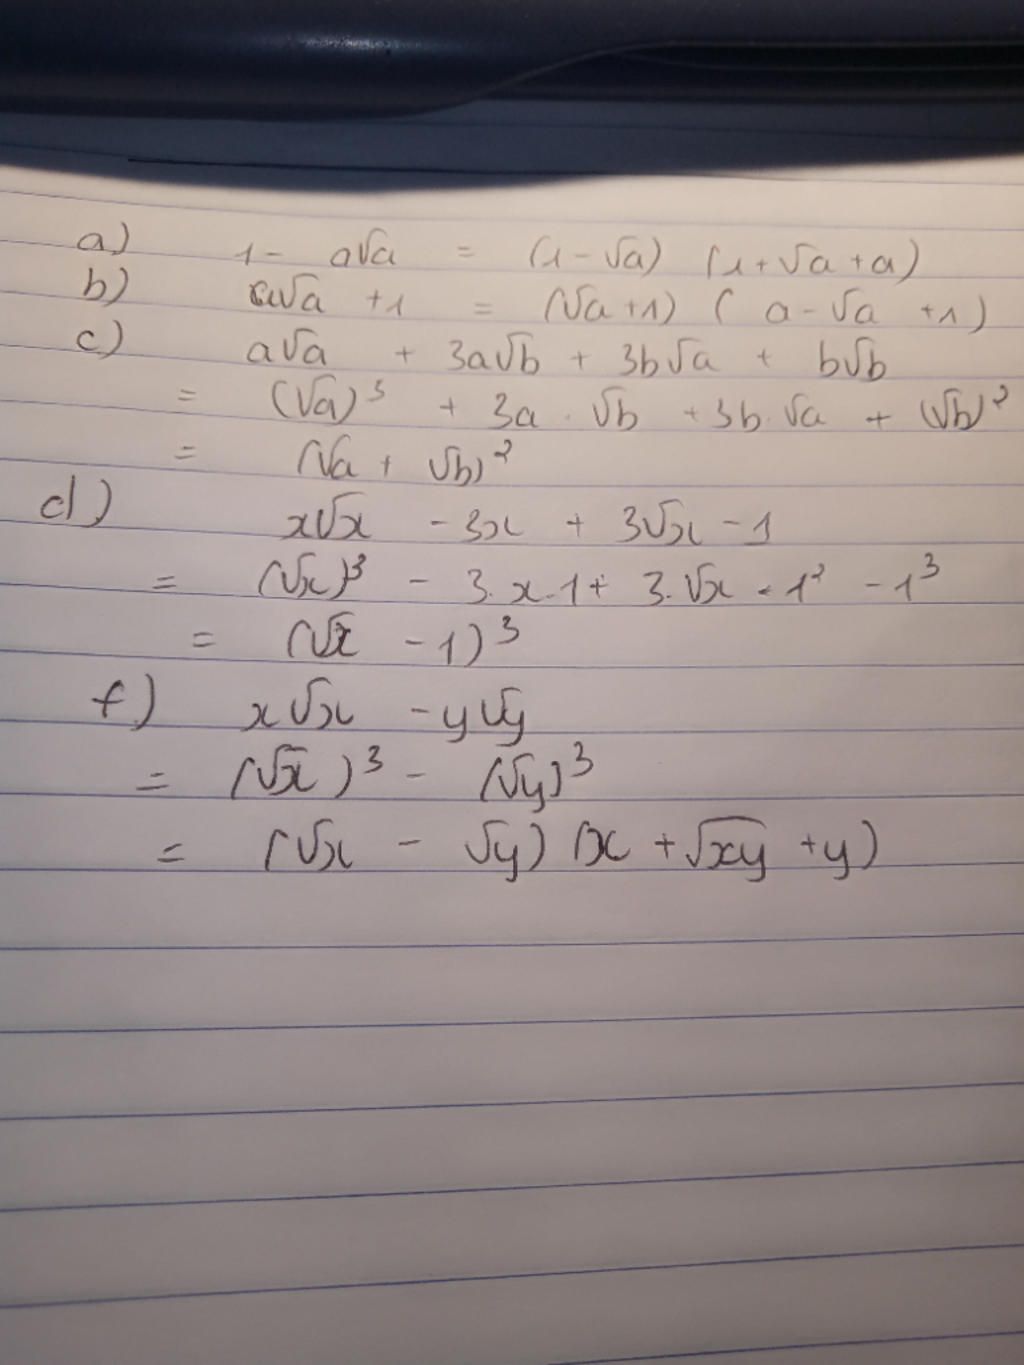 a) 1 - a√a = (1 - √a) (1 + √a + a)
b) a√a + 1 = (√a + 1) ( a - √a + 1)
c) a√a + 3a√b + 3b√a + b√b
= (√a)³ + 3a . √b + 3b. √a + (√b)³
= (√a + √b)³
d) x√x - 3x + 3√x - 1
= (√x)³ - 3. x. 1 + 3. √x . 1² - 1³
= (√x - 1)³
f) x√x - y√y
= (√x)³ - (√y)³
= (√x - √y) (x + √xy + y)